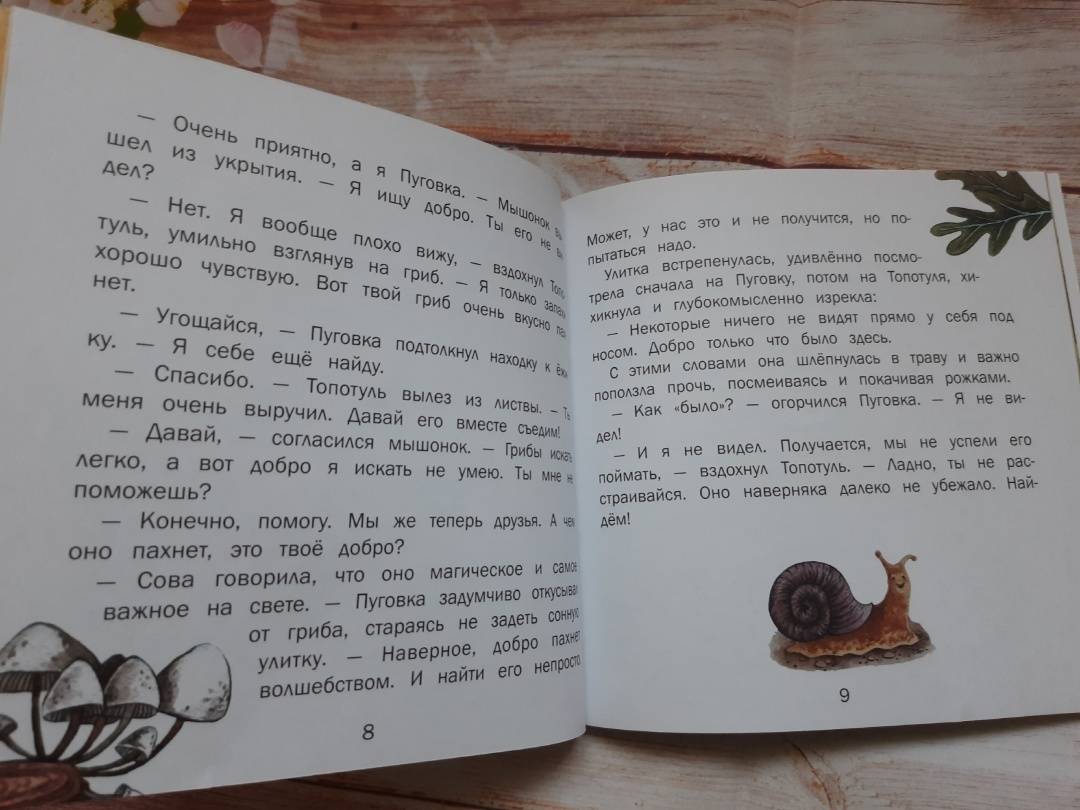 — Очень приятно, а я Пуговка. — Мышонок вы-
шел из укрытия. — Я ищу добро. Ты его не ви-
дел?
— Нет. Я вообще плохо вижу, — вздохнул Топо-
туль, умильно взглянув на гриб. — Я только запахи
хорошо чувствую. Вот твой гриб очень вкусно пах-
нет.
— Угощайся, — Пуговка подтолкнул находку к ёжи-
ку. — Я себе ещё найду.
— Спасибо. — Топотуль вылез из листвы. — Ты
меня очень выручил. Давай его вместе съедим!
— Давай, — согласился мышонок. — Грибы искать
легко, а вот добро я искать не умею. Ты мне не
поможешь?
— Конечно, помогу. Мы же теперь друзья. А чем
оно пахнет, это твоё добро?
— Сова говорила, что оно магическое и самое
важное на свете. — Пуговка задумчиво откусывал
от гриба, стараясь не задеть сонную
улитку. — Наверное, добро пахнет
волшебством. И найти его непросто.
8
Может, у нас это и не получится, но по-
пытаться надо.
Улитка встрепенулась, удивлённо посмо-
трела сначала на Пуговку, потом на Топотуля, хи-
хикнула и глубокомысленно изрекла:
— Некоторые ничего не видят прямо у себя под
носом. Добро только что было здесь.
С этими словами она шлёпнулась в траву и важно
поползла прочь, посмеиваясь и покачивая рожками.
— Как «было»? — огорчился Пуговка. — Я не ви-
дел!
— И я не видел. Получается, мы не успели его
поймать, — вздохнул Топотуль. — Ладно, ты не рас-
страивайся. Оно наверняка далеко не убежало. Най-
дём!
9